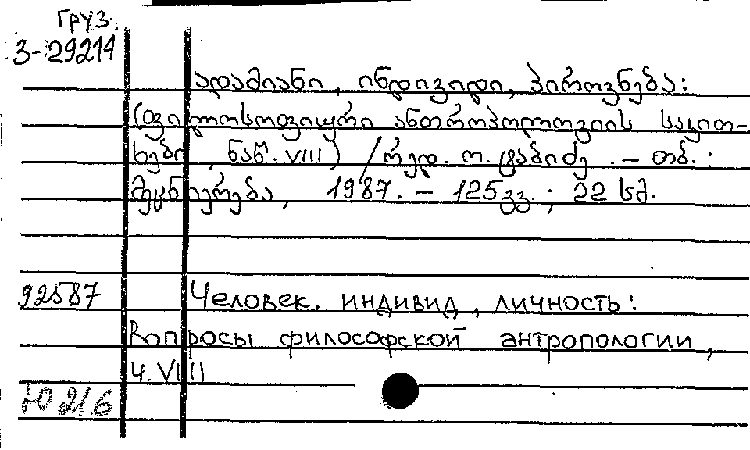 Груз.
3-29214
ადამიანი, ინდივიდი, პიროვნება:
(ფილოსოფიური ანთროპოლოგიის საკით-
ხები, ნაწ. VIII) / რედ. ო. ტაბიძე. – თბ.:
მეცნიერება, 1987. – 125 გვ.; 22 სმ.
92587 Человек. индивид, личность:
Вопросы философской антропологии,
ч. VIII
Ю216